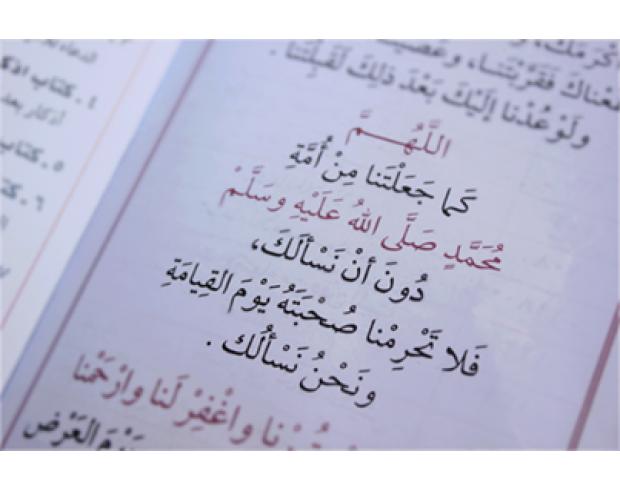 أكرمك،
فقربتنا، وعصينا
ولو عُدْنا إليك بعد ذلك لقبلتنا.
اللَّهُمَّ
كَما جَعَلْتَنا مِنْ أُمَّةِ
مُحَمَّدٍ صَلَّى اللهُ عَلَيْهِ وَسَلَّمْ
دُونَ أنْ نَسْألَكَ،
فَلا تَحْرِمْنا صُحْبَتَهُ يَوْمَ القِيامَةِ
ونَحْنُ نَسْألُك.
واغْفِرْ لَنا وارْحَمْنا
يَوْمَ العَرْضِ
٤. كتاب
أذكار بعد
٥. كتاب
٦. كتا